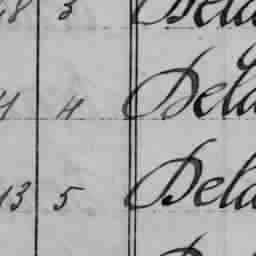 8 3 Dela
4 4 Dela
13 5 Dela